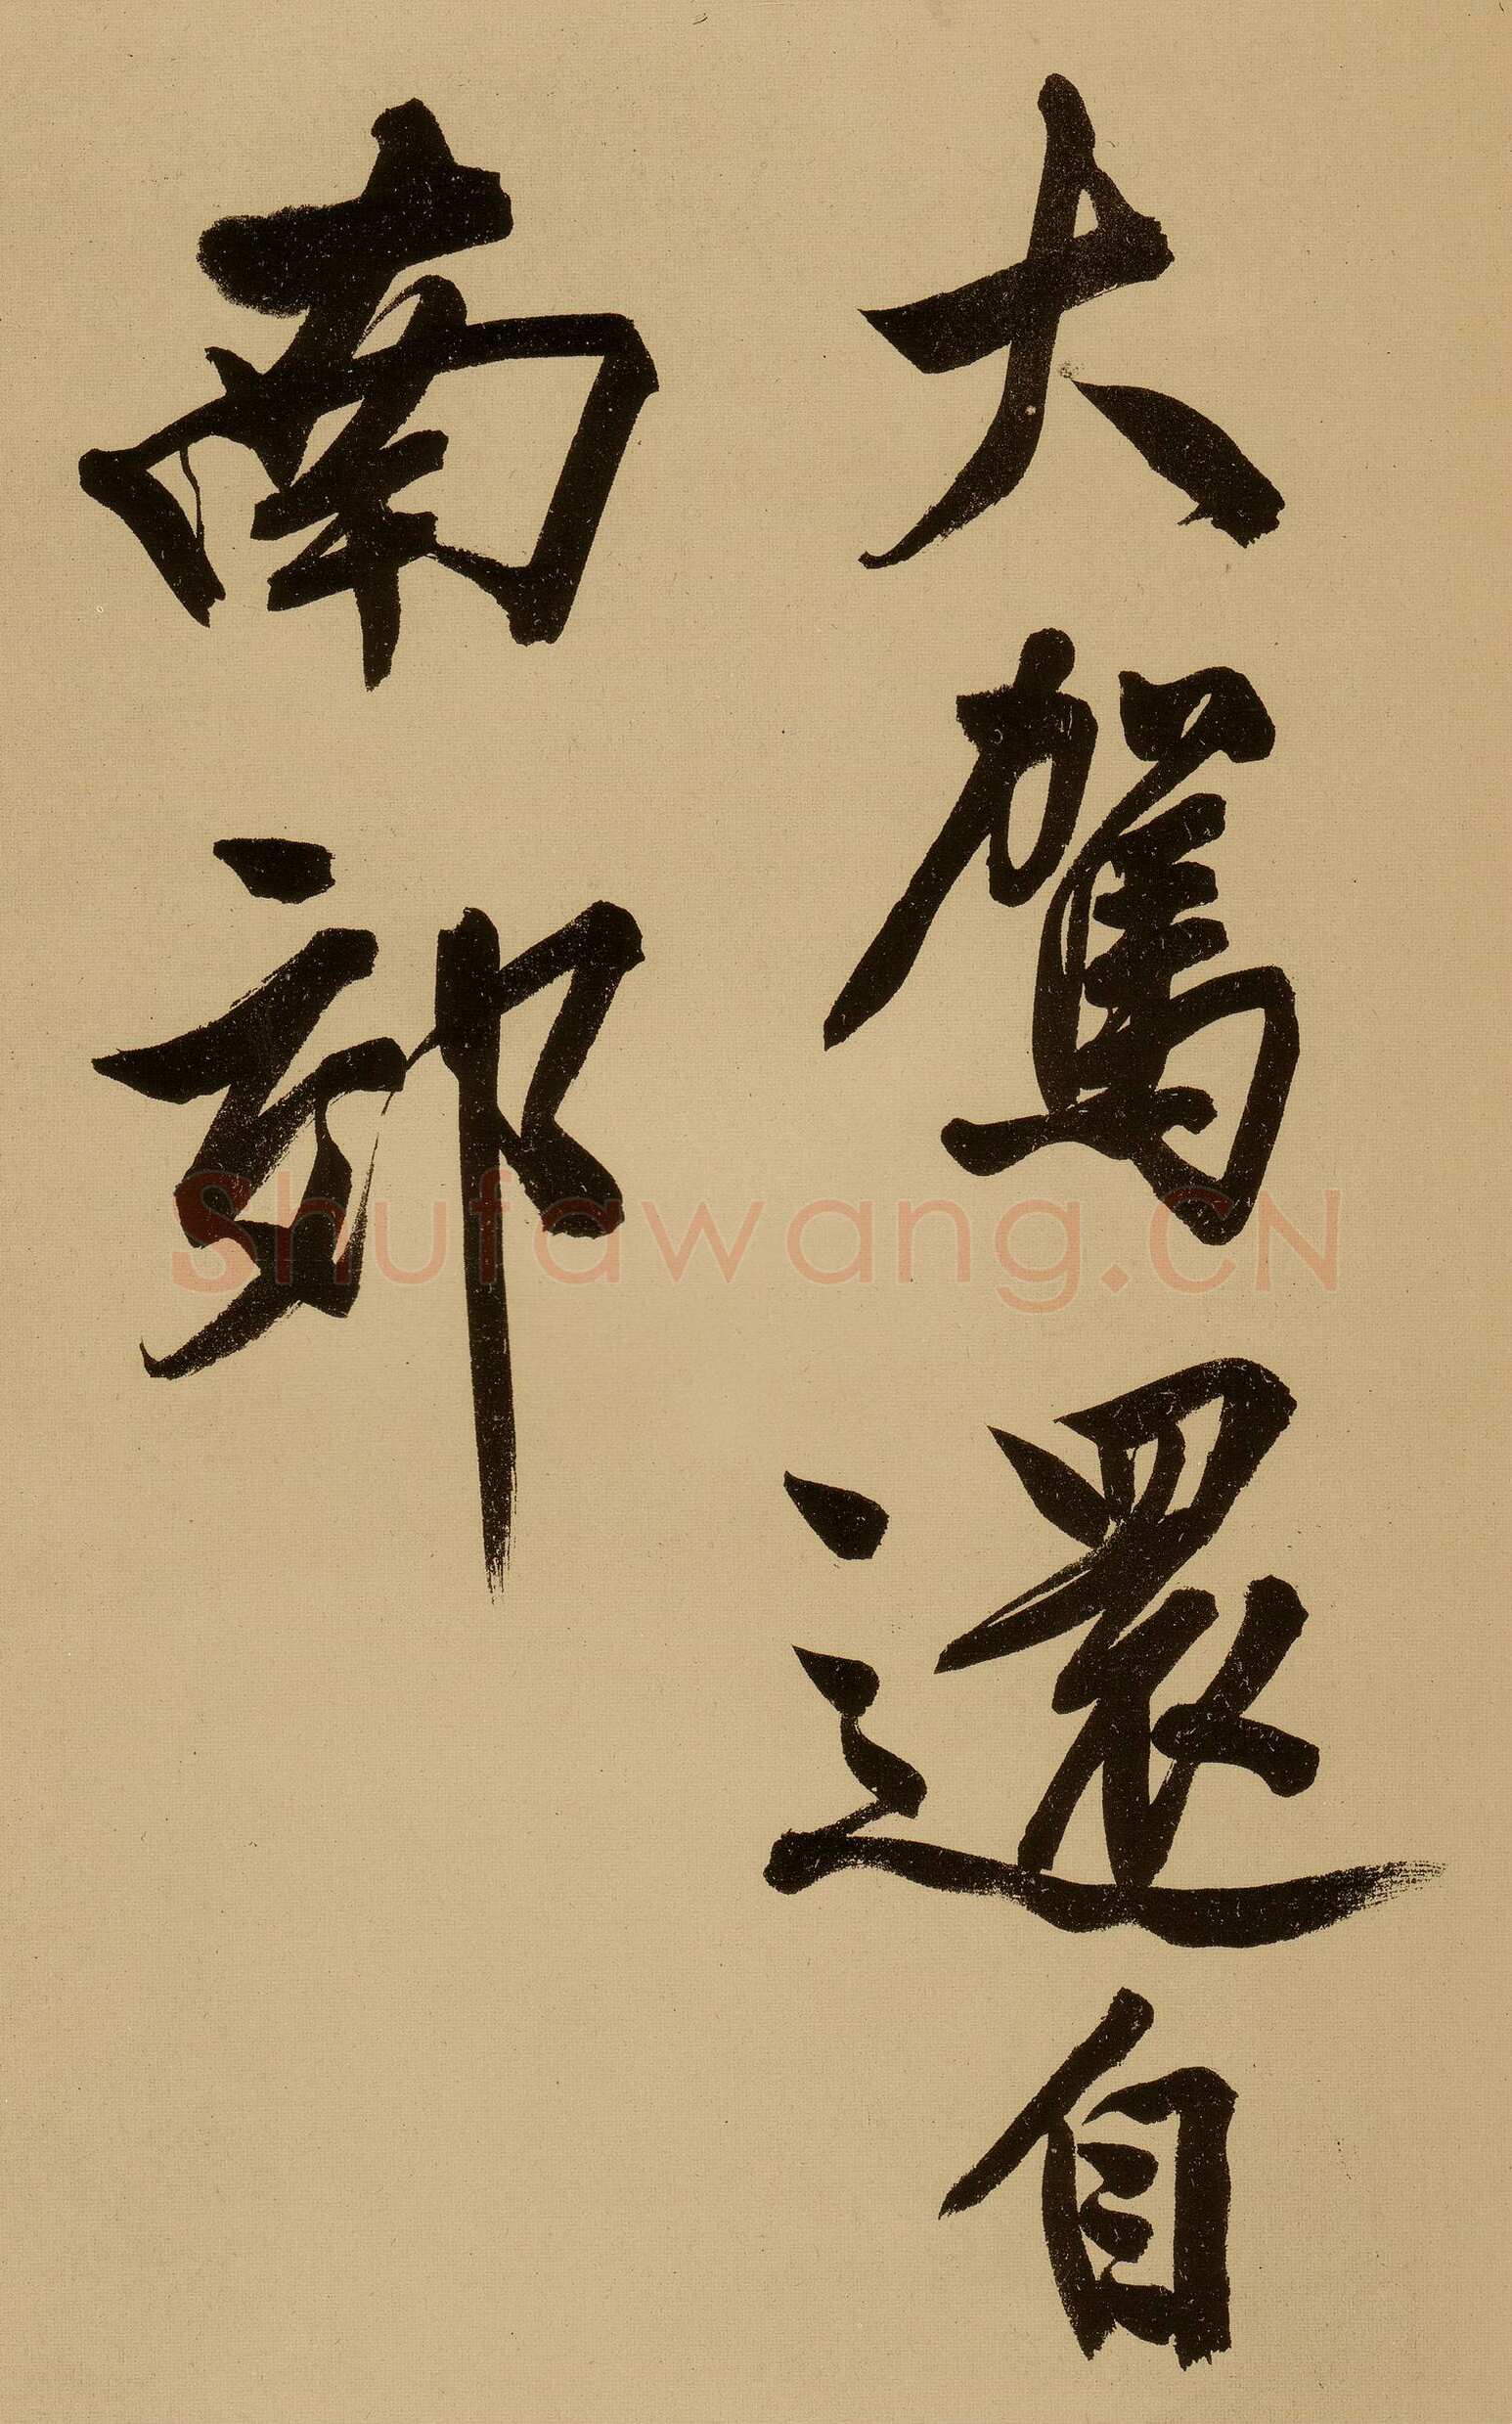 大駕還自
南郊
Shufawang.CN